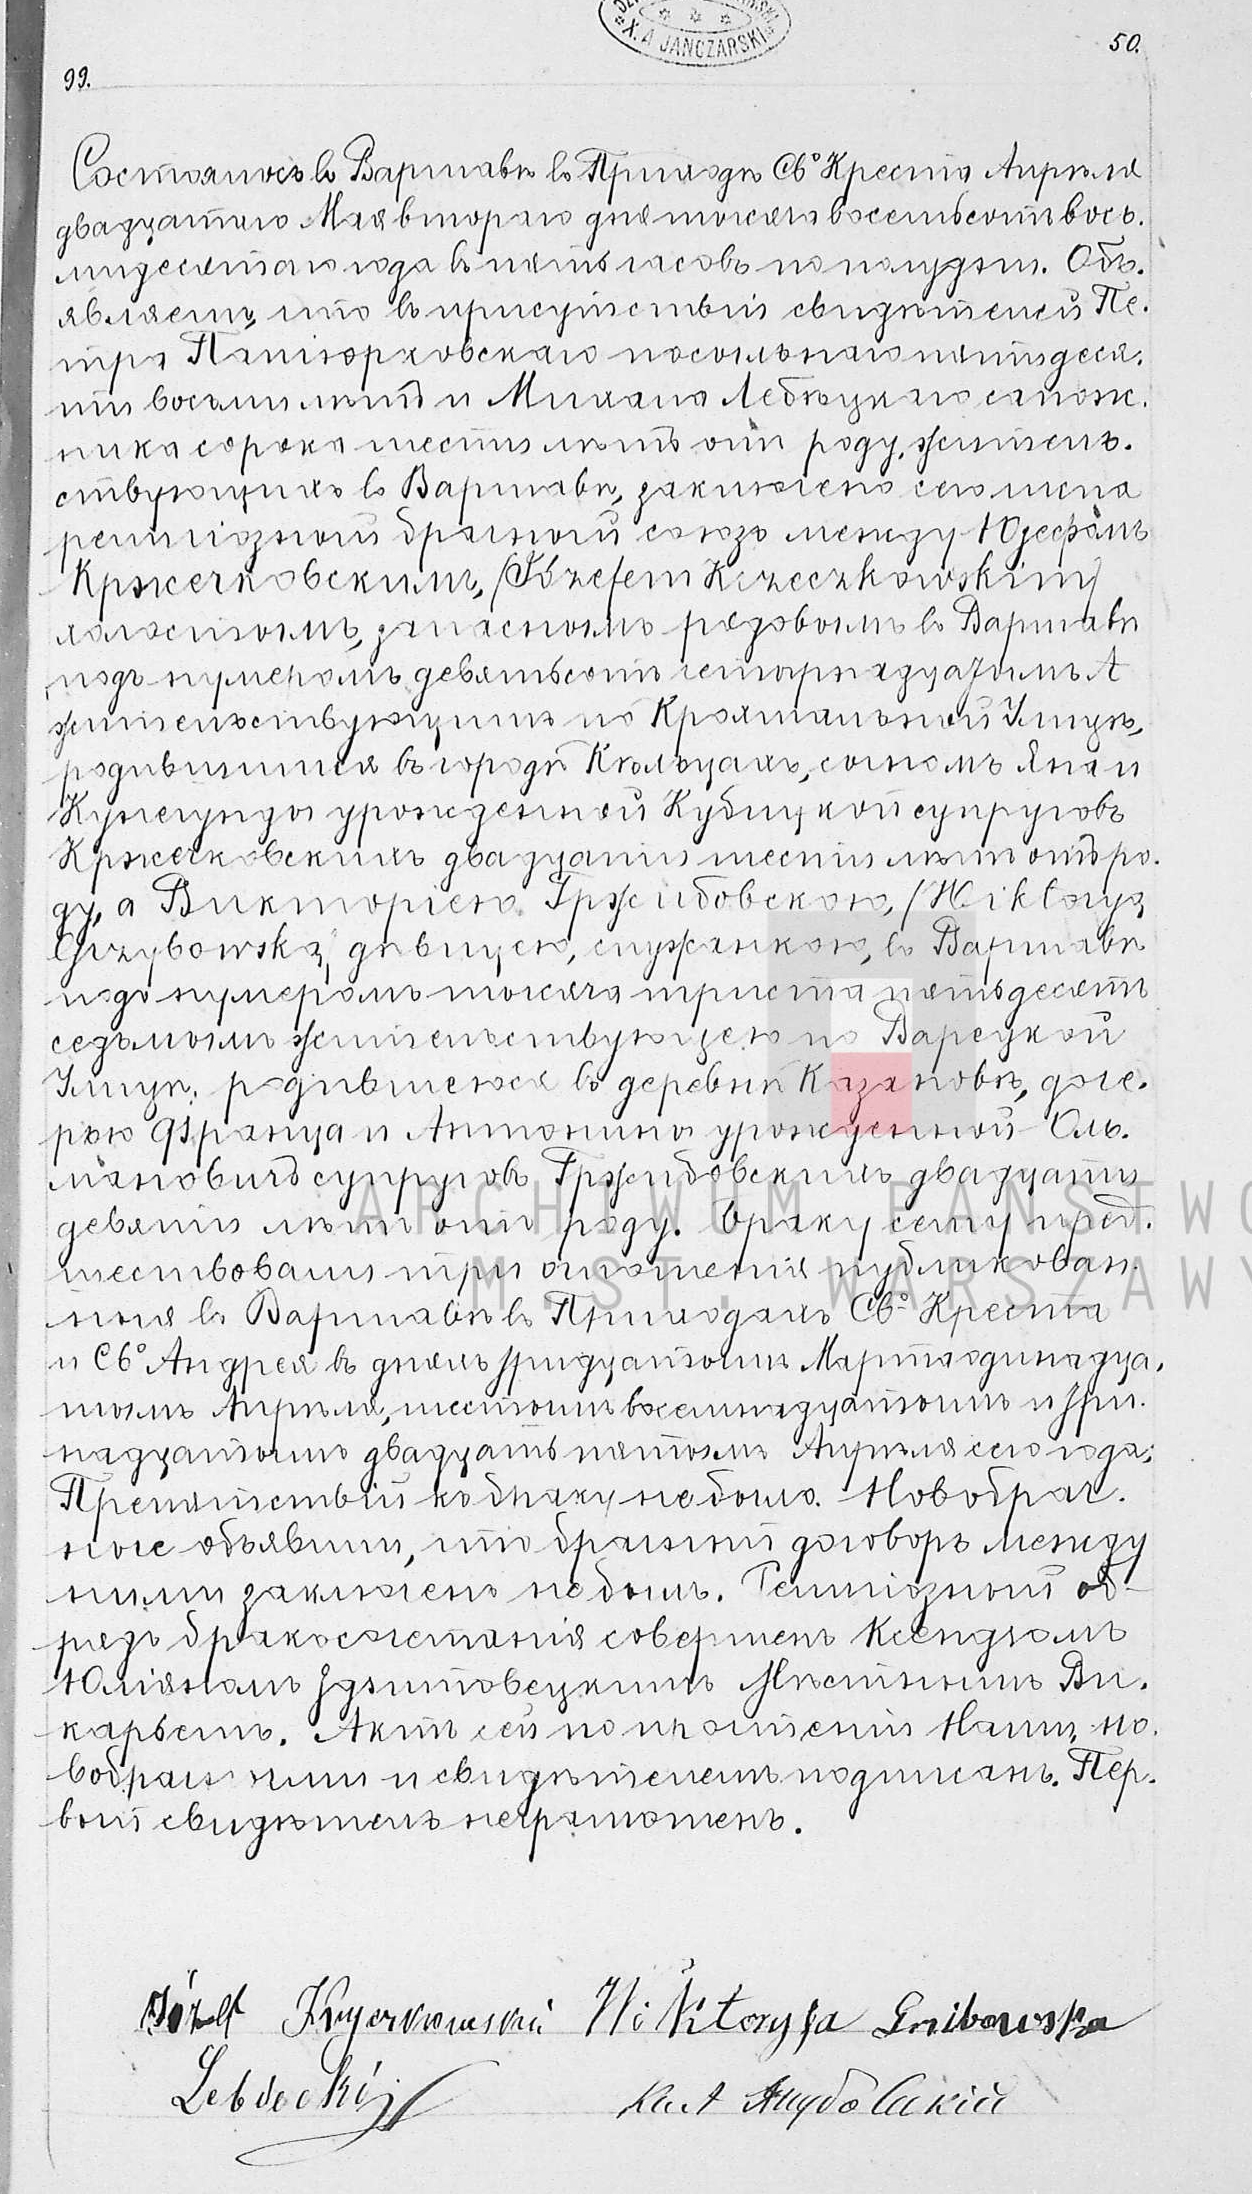 X. A JANCZARSKI
50.
99.
Состоялось въ Варшавѣ въ Приходѣ Св° Креста Апрѣля
двадцатаго Мая втораго дня тысяча восемьсотъ вось.
мидесятаго года въ пять часовъ по полудни. Объ.
являемъ, что въ присутствіи свидѣтелей Пе.
тра
пятидеся.
ти восьми лѣтъ и Михала Лебѣцкаго сапож.
ника сорока шести лѣтъ отъ роду, жительъ.
ствующихъ въ Варшавѣ, заключенъ сего числа
религіозный брачный союзъ между Юзефомъ
Кржечковскимъ, (Józefem Krzeczkowskim)
холостымъ, запаснымъ рядовымъ въ Варшавѣ
подъ нумеромъ девятьсотъ четырнадцатымъ А
жительствующимъ по Крохмальной Улицѣ,
родившимся въ городѣ Кѣльцахъ, сыномъ Яна и
Кунегунды урожденной Кубицкой супруговъ
Кржечковскихъ двадцати шести лѣтъ отъ ро.
ду, а Викторіею Гржибовскою, (Wiktoryą
Grzybowską) дѣвицею, служанкою, въ Варшавѣ
подъ нумеромъ тысяча триста пятьдесятъ
седьмымъ жительствующею по Варецкой
Улицѣ, родившеюся въ деревнѣ Казановѣ, доче.
рью Франца и Антонины урожденной
супруговъ Гржибовскихъ двадцати
девяти лѣтъ отъ роду. Браку сему пред.
шествовали три оглашенія публикован.
ныя въ Варшавѣ въ Приходахъ Св° Креста
и Св° Андрея въ дняхъ тридцатомъ Марта одинадца.
томъ Апрѣля, шестомъ восемнадцатомъ и три.
надцатомъ двадцать пятомъ Апрѣля сего года;
Препятствій къ браку не было. Новобрач.
ные объявили, что брачный договоръ между
ними заключенъ не былъ. Религіозный об-
рядъ бракосочетанія совершенъ Ксендзомъ
Юліаномъ Мѣстнымъ Ви.
карьемъ. Актъ сей по прочтеніи Нами, но.
вобрачными и свидѣтелемъ подписанъ. Пер.
вый свидѣтель неграмотенъ.
ARCHIWUM PAŃSTWO
M. ST. WARSZAWY
Józef Krzeczkowski Wiktoryja Gribowska
Lebiecki